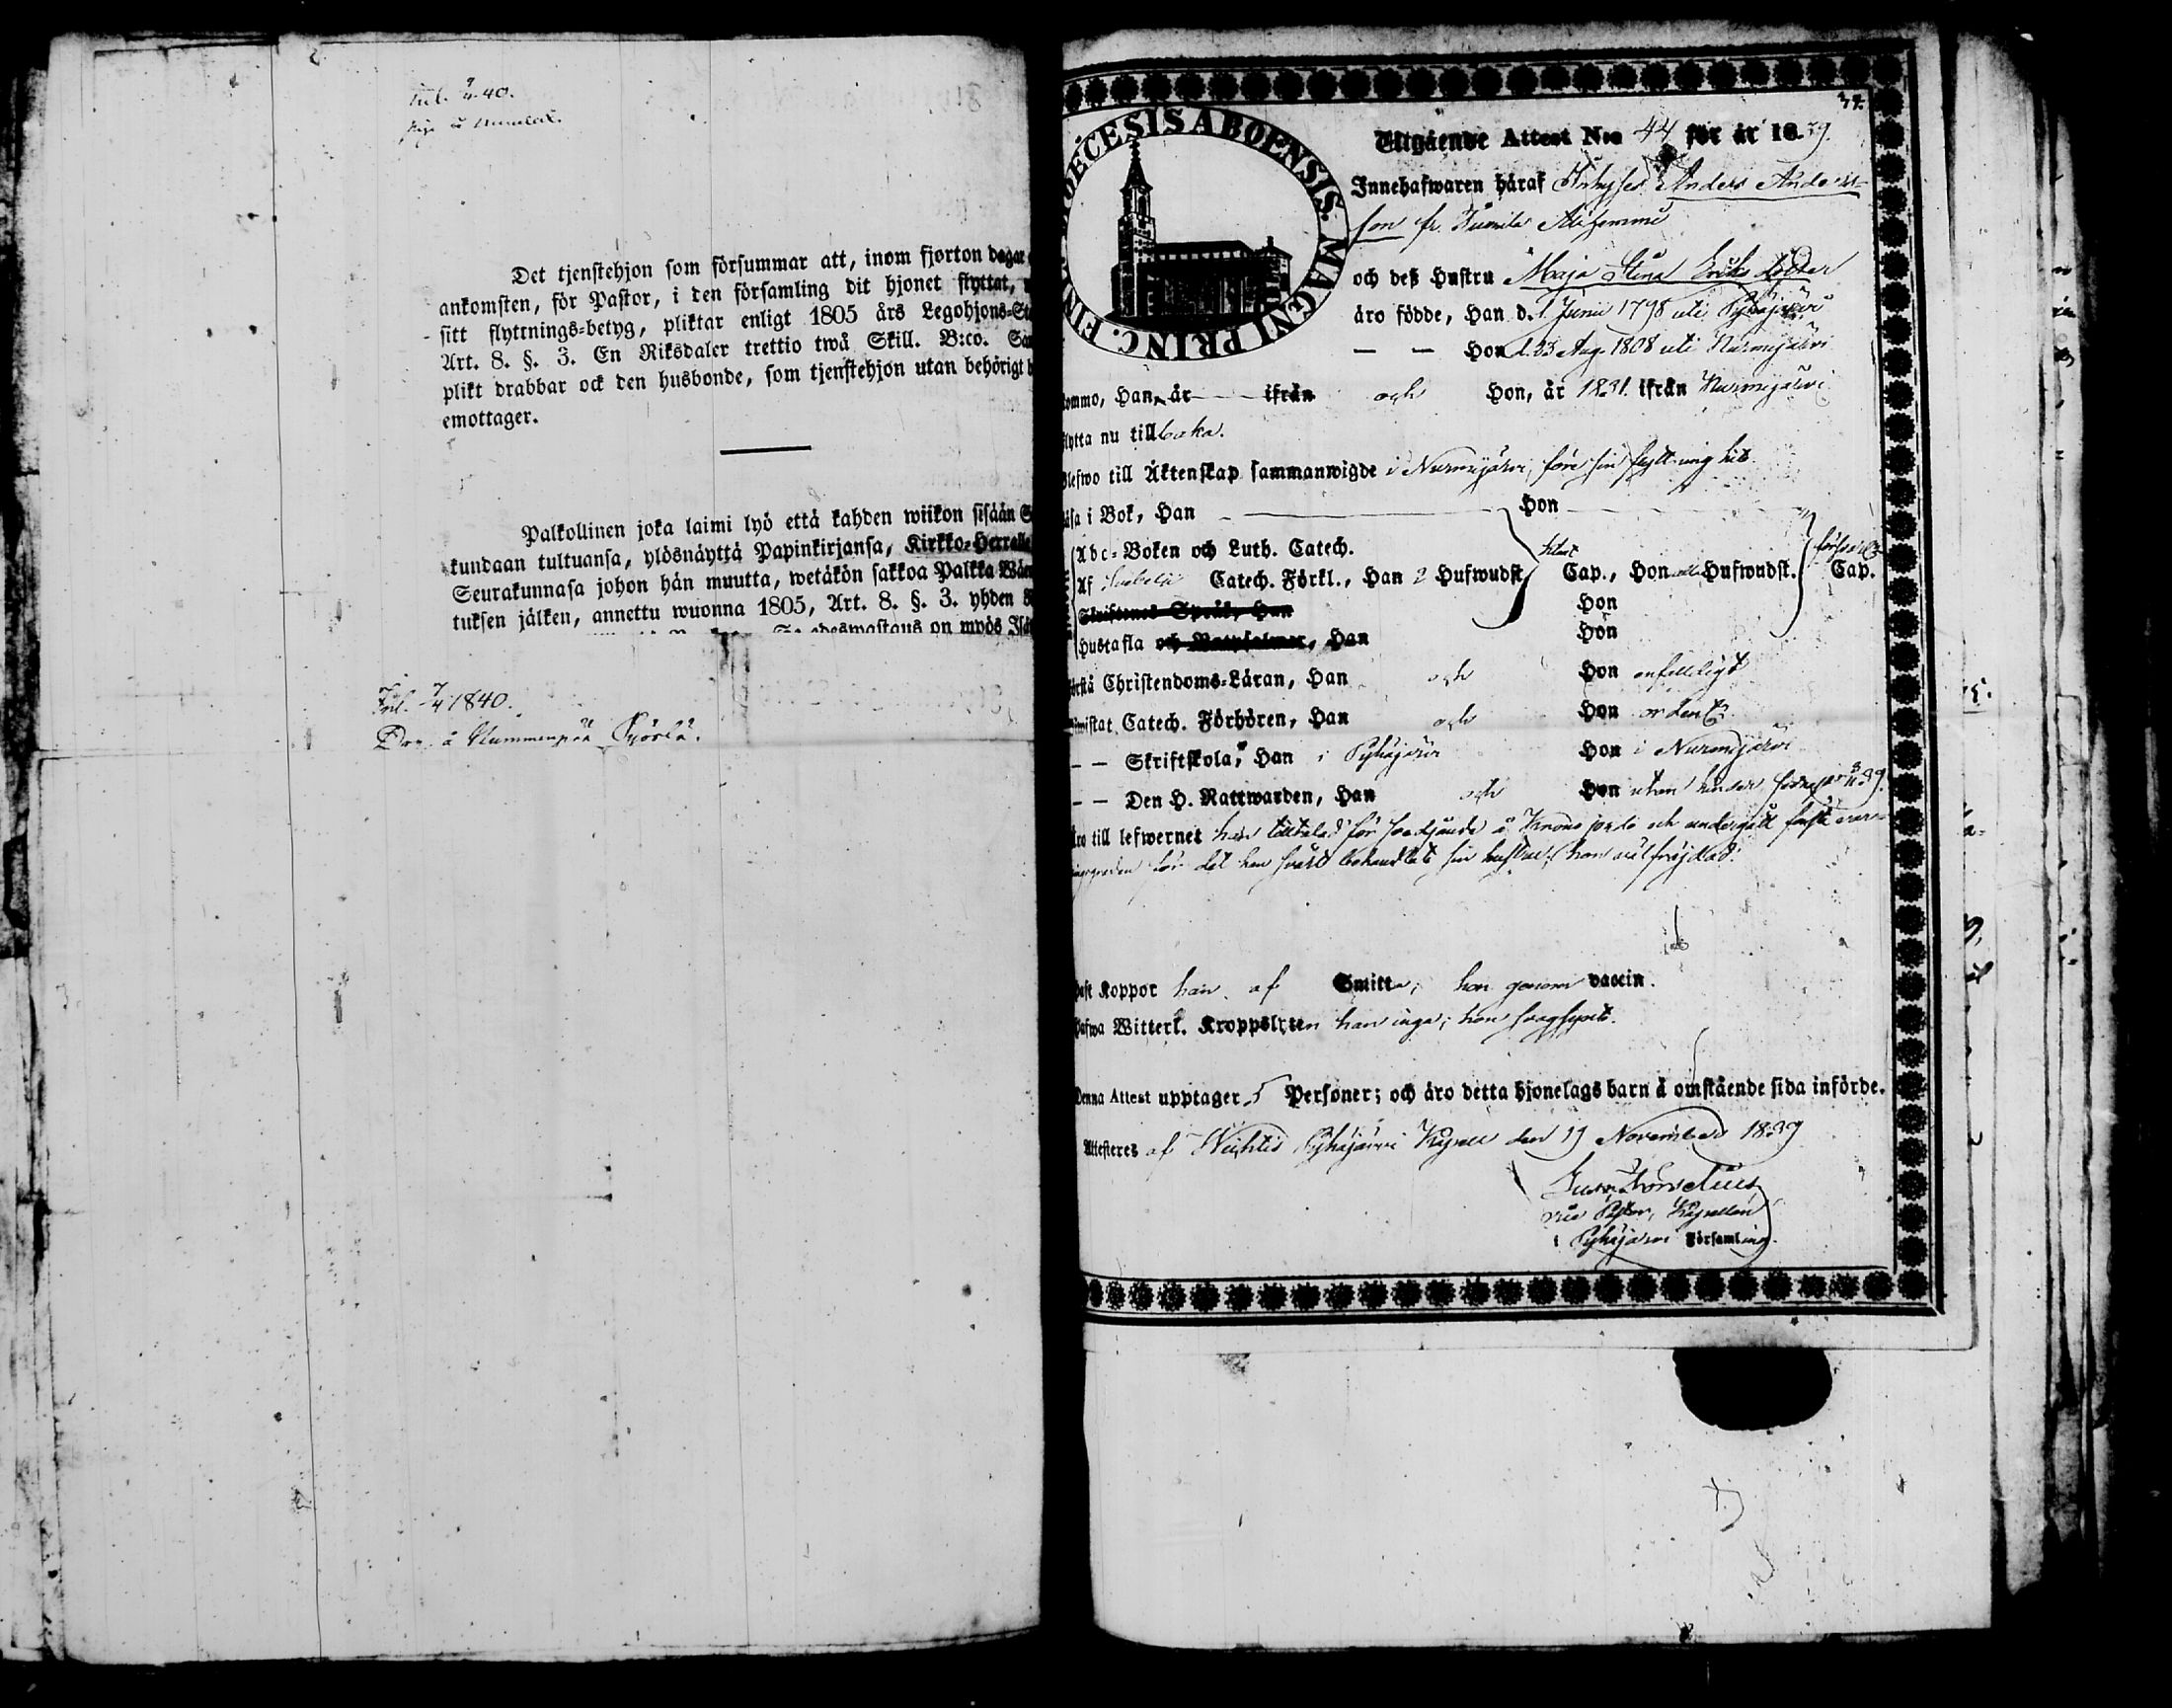 Inl. 7/4 40.
Det tjenstehjon som försummar att, inom fjorton dagar
ankomsten, för Pastor, i den församling dit hjonet flyttat,
sitt flyttnings-betyg, pliktar enligt 1805 års Legohjons-St
Art. 8. §. 3. En Riksdaler trettio twå Skill. B:co. Sa
plikt drabbar ock den husbonde, som tjenstehjon utan behörigt b
emottager.
Palkollinen joka laimi lyö että kahden wiikon sisään S
kundaan tultuansa, ylösnäyttä Papinkirjansa, Kirkko-Herralle
Seurakunnasa johon hän muutta, wetäkön sakkoa Palkka Wän
tuksen jälken, annettu wuonna 1805, Art. 8. §. 3. yhden
edeswastaus on myös Isä
Inl. 7/4 1840.
Drg. å Nummenpää
34
DIOECESIS ABOENSIS. MAGNI PRINC. FIN
Utgående Attest N:o 44 för år 1839.
Innehafwaren häraf Inhyses Anders Anders-
son fr.
och deß Hustru Maja Stina Eriks dotter
äro födde, Han d. 1 Junii 1798 uti Pyhäjärvi
— — Hon d. 23 Aug. 1808 uti Nurmijärvi
ommo, Han, år ifrån och Hon, år 1831. ifrån Nurmijärvi
lytta nu tillbaka.
lefwo till Äktenskap sammanwigde i Nurmijärvi, före sin flyttning hit.
äsa i Bok, Han — Hon —
Abc-Boken och Luth. Catech.
Af Svebelii Catech. Förkl., Han 2 Hufwudst. Cap., Hon alla Hufwudst. Cap.
Skriftenes Språk, Han Hon
Hustafla och Botpsalmer, Han Hon
örstå Christendoms-Läran, Han och Hon enfalleligt
mistat Catech. Förhören, Han och Hon ordentl.
— — Skriftskola, Han i Pyhäjärvi Hon i Nurmijärvi
— — Den H. Nattwarden, Han och Hon utan hinder
äro till lefwernet han tilltalad för å Krono jord och undergått
för det han svårt behandlat sin hustru; hon välfrejdad.
aft Koppor han af Smitta, hon genom vaccin.
afwa Witterl. Kroppslyten han inga; hon svagsynt.
Denna Attest upptager 5 Personer; och äro detta hjonelags barn å omstående sida införde.
Attesteras af Wichtis Pyhäjärvi Kapell den 19 November 1839
i Pyhäjärvi Församling.